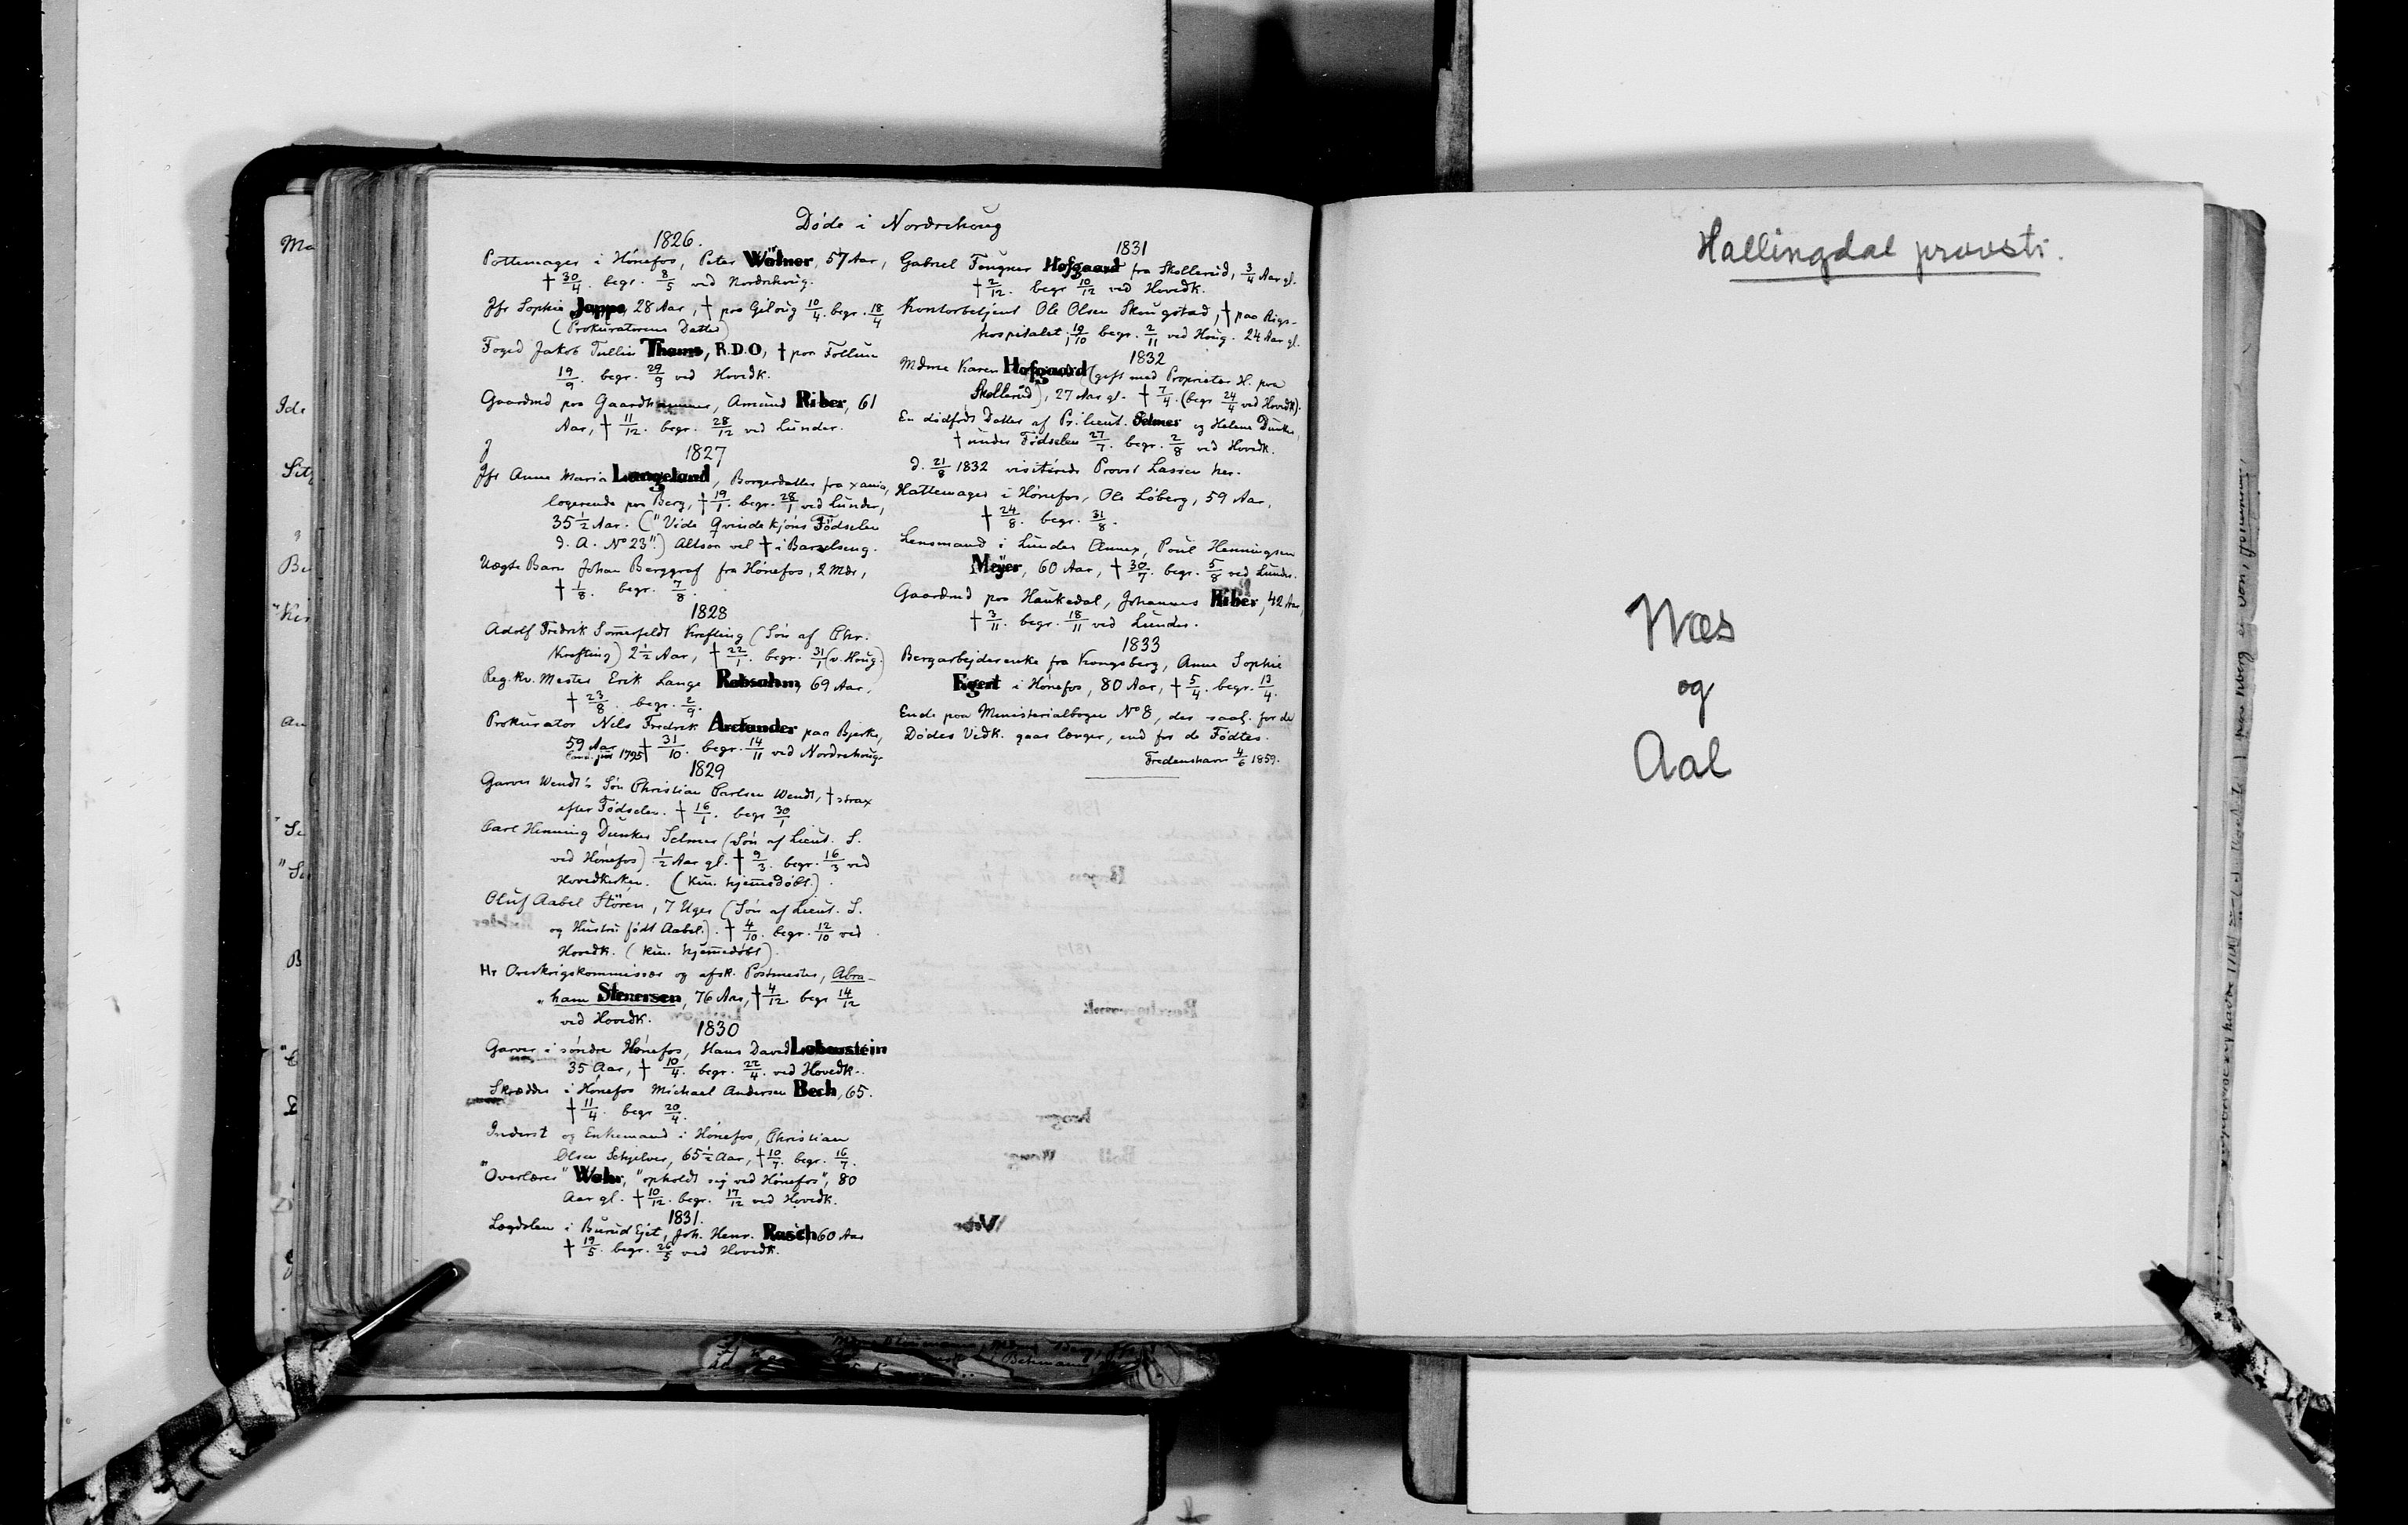 Døde i Nordrehoug
1826.
Pottemager i Hønefos, Peter Wølner, 57 Aar,
† 30/4. begr. 8/5 ved Nordrehoug.
Jfr Sophie Jappe, 28 Aar, † paa Giloug 10/4. begr. 18/4
(Prokuratorens Datter)
Foged Jakob Tullin Thams, R.D.O, † paa Follum
19/9. begr. 29/9 ved Hovedk.
Gaardmd paa Gaardhammer, Amund Riber, 61
Aar, † 11/12. begr. 28/12 ved Lunder.
1827
Jfr Anne Maria Langeland, Borgerdatter fra Xania,
logerende paa Berg, † 19/1. begr. 28/1 ved Lunder,
35 1/2 Aar. ("Vide Qvindekjøns Fødselen
d. A. No 23".) Altsaa vel † i Barselseng.
Uægte Barn Johan Berggraf fra Hønefos, 2 Mdr,
† 1/8. begr. 7/8.
1828
Adolf Fredrik Sommerfeldt Krefting (Søn af Chr.
Krefting) 2 1/2 Aar, † 22/1. begr. 31/1 (v. Houg.)
Reg. Kv. Mester Erik Lange Robsahm, 69 Aar,
† 23/8. begr. 2/9.
Prokurator Nils Fredrik Arctander paa Bjerke,
59 Aar † 31/10. begr. 14/11 ved Nordrehoug
Cand. jur 1795
1829
Garver Wendt's Søn Christian Carlsen Wendt, † strax
efter Fødselen. † 16/1. begr 30/1
Carl Henning Dunker Selmer (Søn af Lieut. S.
ved Hønefos) 1/2 Aar gl. † 9/3. begr. 16/3 ved
Hovedkirken. (kun hjemmedøbt.)
Oluf Aabel Stören, 7 Uger (Søn af Lieut. S.
og Hustru født Aabel.) † 4/10. begr. 12/10 ved
Hovedk. (kun hjemmedøbt)
Hr Overkrigskommissær og afsk. Postmester, Abra-
ham Stenersen, 76 Aar, † 4/12. begr 14/12
ved Hovedk.
1830
Garver i søndre Hønefos, Hans David Lobenstein
35 Aar, † 10/4. begr. 22/4. ved Hovedk.
Skrædder i Hønefos Michael Andersen Bech, 65.
† 11/4. begr 20/4.
Inderst og Enkemand i Hønefos, Christian
Olsen Schjelver, 65 1/2 Aar, † 10/7. begr. 16/7.
"Overlærer" Wehr, "opholdt sig ved Hønefos", 80
Aar gl. † 10/12. begr. 17/12 ved Hovedk.
1831.
Lægdslem i Burud Ejet, Joh. Henr. Rasch, 60 Aar
† 19/5. begr. 26/5 ved Hovedk.
1831
Gabriel Fougner Hofgaard fra Skollerud, 3/4 Aar gl.
† 2/12. begr 10/12 ved Hovedk.
Kontorbetjent Ole Olsen Skougstad, † paa Rigs-
hospitalet, 19/10 begr. 2/11 ved Houg. 24 Aar gl.
1832
Mdme Karen Hofgaard (gift med Proprietær H. paa
Skollerud), 27 Aar gl. † 7/4. (begr 24/4 ved Hovedk).
En dødfødt Datter af Pr. lieut. Selmer og Helene Dunker,
† under Fødselen 27/7. begr. 2/8 ved Hovedk.
d. 21/8 1832 visiterede Provst Lassen her.
Hattemager i Hønefos, Ole Løberg, 59 Aar,
† 24/8. begr. 31/8.
Lensmand i Lunder Annex, Poul Henningsen
Meÿer, 60 Aar, † 30/7. begr. 5/8 ved Lunder.
Gaardmd paa Haukedal, Johannes Riber, 42 Aar,
† 3/11. begr. 18/11 ved Lunder.
1833
Bergarbejderenke fra Kongsberg, Anne Sophie
Egert i Hønefos, 80 Aar, † 5/4. begr. 13/4.
Ende paa Ministerialbogen No 8, der saal. for de
Dødes Vedk. gaar længer, end for de Fødtes.
Fredenshavn 4/6 1859.
Hallingdal provsti.
Næs
og
Aal